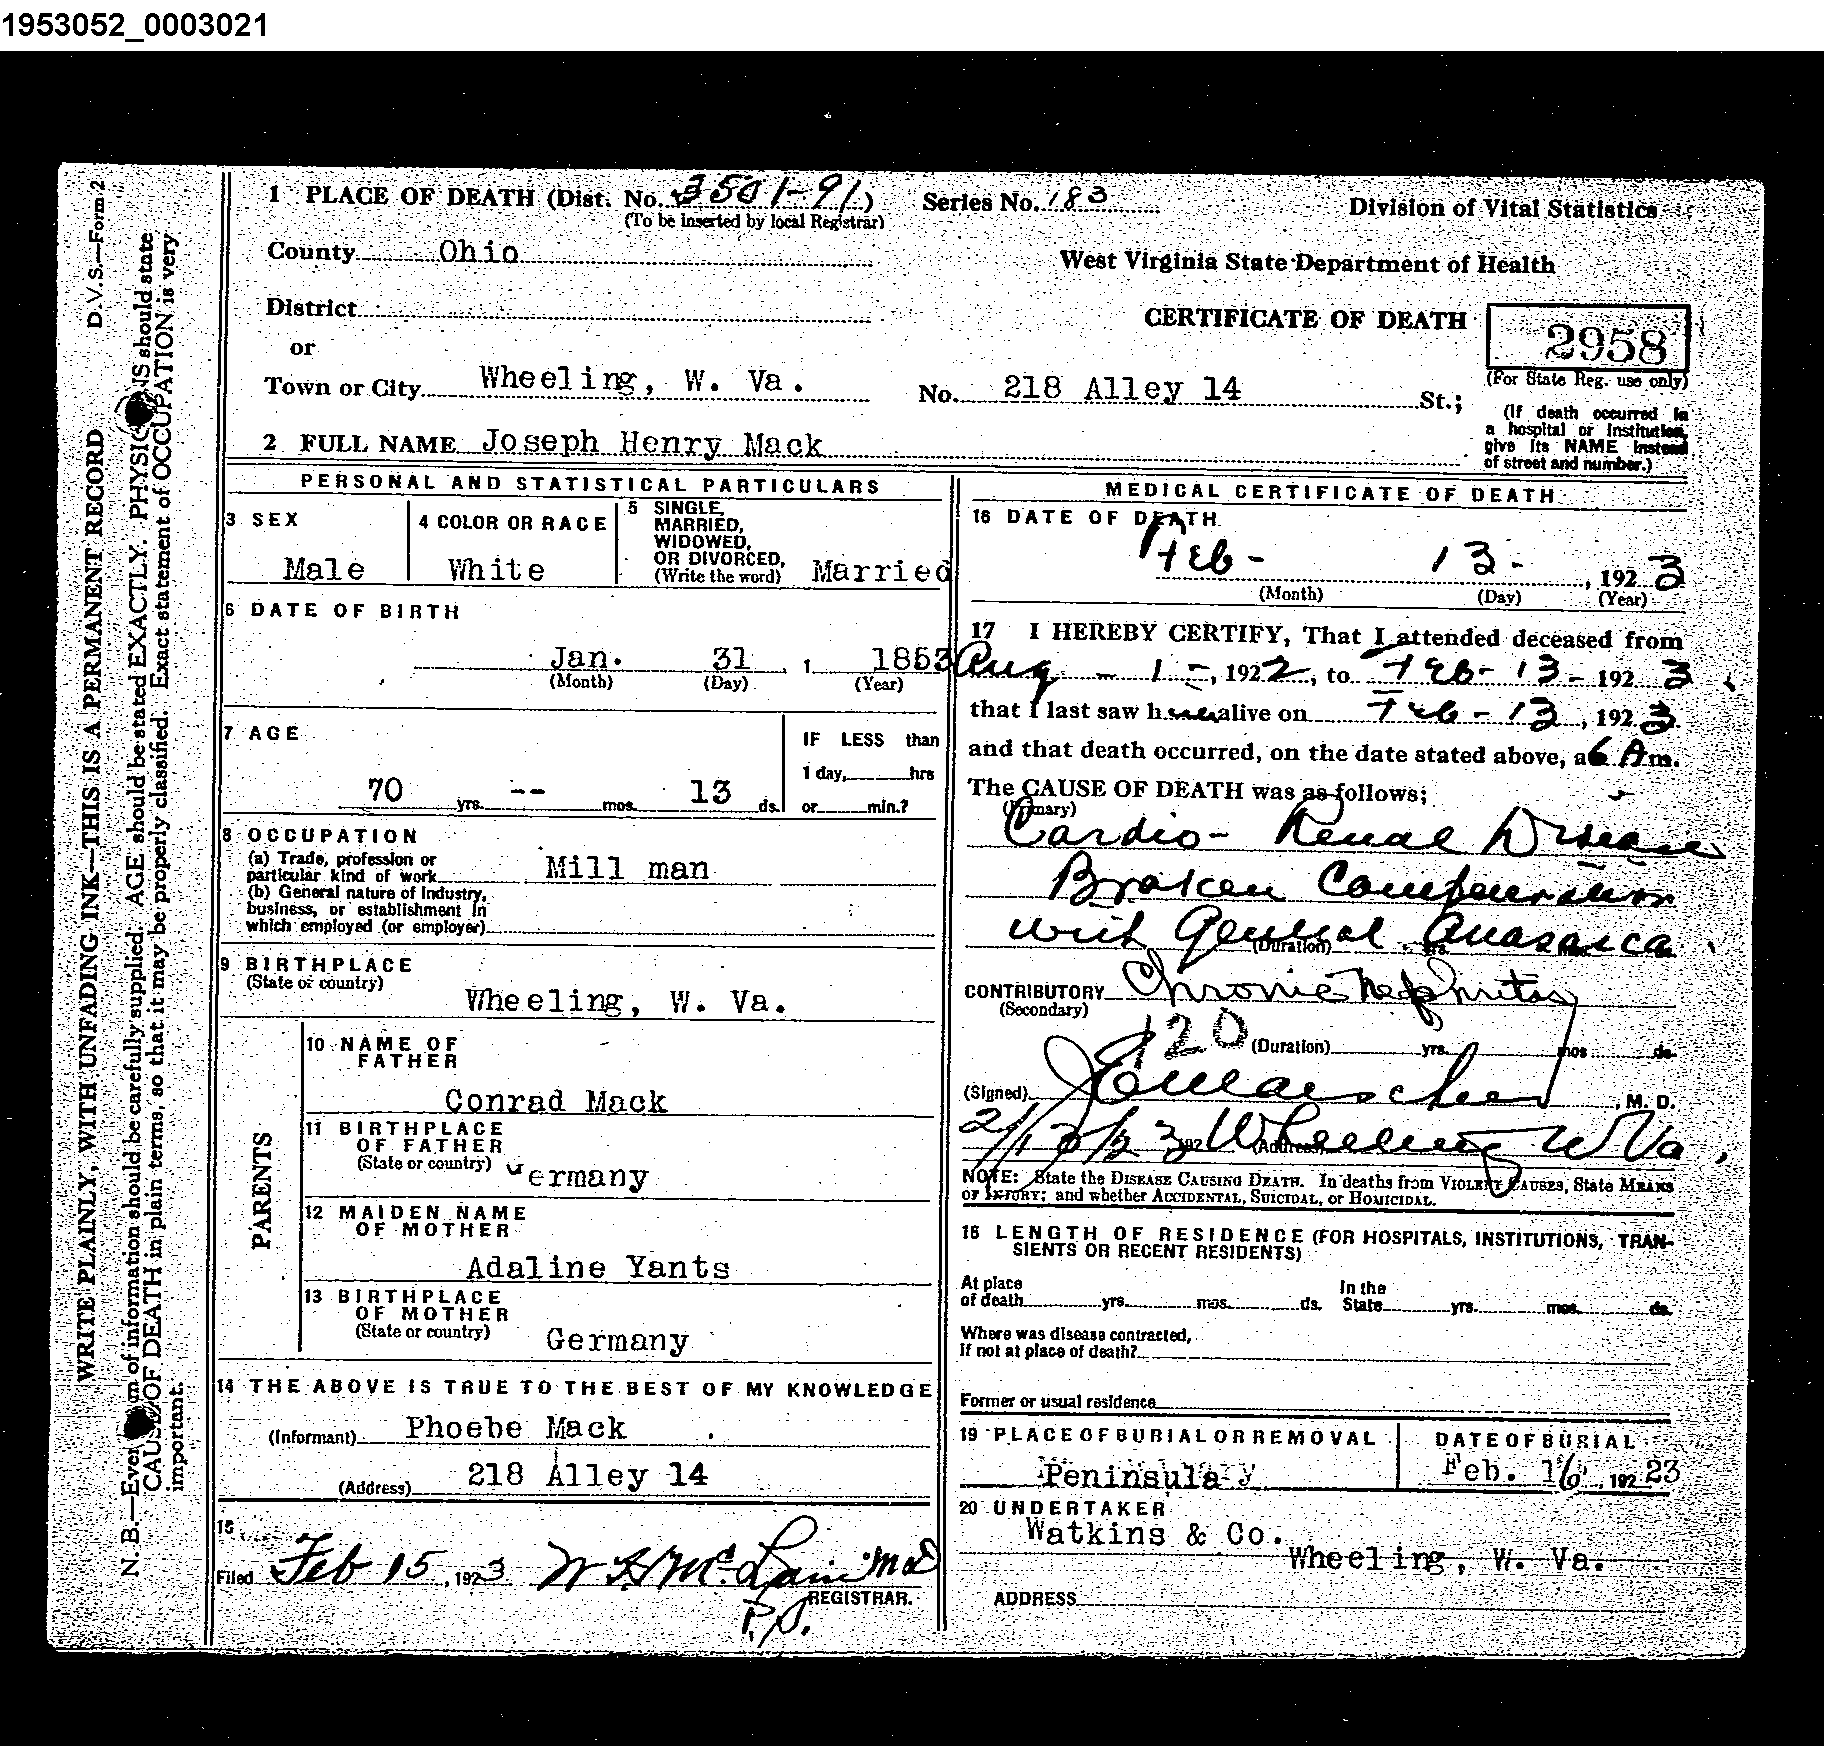 1953052_0003021
D.V.S.—Form 2
WRITE PLAINLY, WITH UNFADING INK—THIS IS A PERMANENT RECORD
N. B.—Every item of information should be carefully supplied. AGE should be stated EXACTLY. PHYSICIANS should state
CAUSE OF DEATH in plain terms, so that it may be properly classified. Exact statement of OCCUPATION is very
important.
1 PLACE OF DEATH (Dist. No. 3501-91) Series No. 183 Division of Vital Statistics
(To be inserted by local Registrar)
County Ohio West Virginia State Department of Health
District CERTIFICATE OF DEATH 2958
or
Town or City Wheeling, W. Va. No. 218 Alley 14 St.; (For State Reg. use only)
(If death occurred in
a hospital or Institution,
give its NAME instead
of street and number.)
2 FULL NAME Joseph Henry Mack
PERSONAL AND STATISTICAL PARTICULARS
3 SEX
Male
4 COLOR OR RACE
White
5 SINGLE,
MARRIED,
WIDOWED,
OR DIVORCED,
(Write the word) Married
6 DATE OF BIRTH
Jan. 31 , 1 1853
(Month) (Day) (Year)
7 AGE
70 yrs. -- mos. 13 ds.
IF LESS than
1 day, hrs
or min.?
8 OCCUPATION
(a) Trade, profession or
particular kind of work Mill man
(b) General nature of Industry,
business, or establishment in
which employed (or employer)
9 BIRTHPLACE
(State or country)
Wheeling, W. Va.
PARENTS
10 NAME OF
FATHER
Conrad Mack
11 BIRTHPLACE
OF FATHER
(State or country) Germany
12 MAIDEN NAME
OF MOTHER
Adaline Yants
13 BIRTHPLACE
OF MOTHER
(State or country) Germany
14 THE ABOVE IS TRUE TO THE BEST OF MY KNOWLEDGE
(Informant) Phoebe Mack
(Address) 218 Alley 14
15
Filed Feb 15, 1923 W H McLain MD
REGISTRAR.
MEDICAL CERTIFICATE OF DEATH
16 DATE OF DEATH
Feb - 13 - , 1923
(Month) (Day) (Year)
17 I HEREBY CERTIFY, That I attended deceased from
Aug - 1 -, 1922, to Feb - 13 - 1923
that I last saw h alive on Feb - 13, 1923.
and that death occurred, on the date stated above, at 6 A m.
The CAUSE OF DEATH was as follows;
(Primary)
Cardio - Renal Disease
Broken Compensation
with General Anasarca.
(Duration) yrs. mos.
CONTRIBUTORY Chronic Nephritis
(Secondary)
120 (Duration) yrs. mos ds.
(Signed) , M. D.
2/13/23 192 (Address) Wheeling W Va.
NOTE: State the DISEASE CAUSING DEATH. In deaths from VIOLENT CAUSES, State MEANS
OF INJURY; and whether ACCIDENTAL, SUICIDAL, or HOMICIDAL.
18 LENGTH OF RESIDENCE (FOR HOSPITALS, INSTITUTIONS, TRAN-
SIENTS OR RECENT RESIDENTS)
At place In the
of death yrs. mos. ds. State yrs. mos. ds.
Where was disease contracted,
if not at place of death?
Former or usual residence
19 PLACE OF BURIAL OR REMOVAL
Peninsula
DATE OF BURIAL
Feb. 16, 192 23
20 UNDERTAKER
Watkins & Co.
Wheeling, W. Va.
ADDRESS